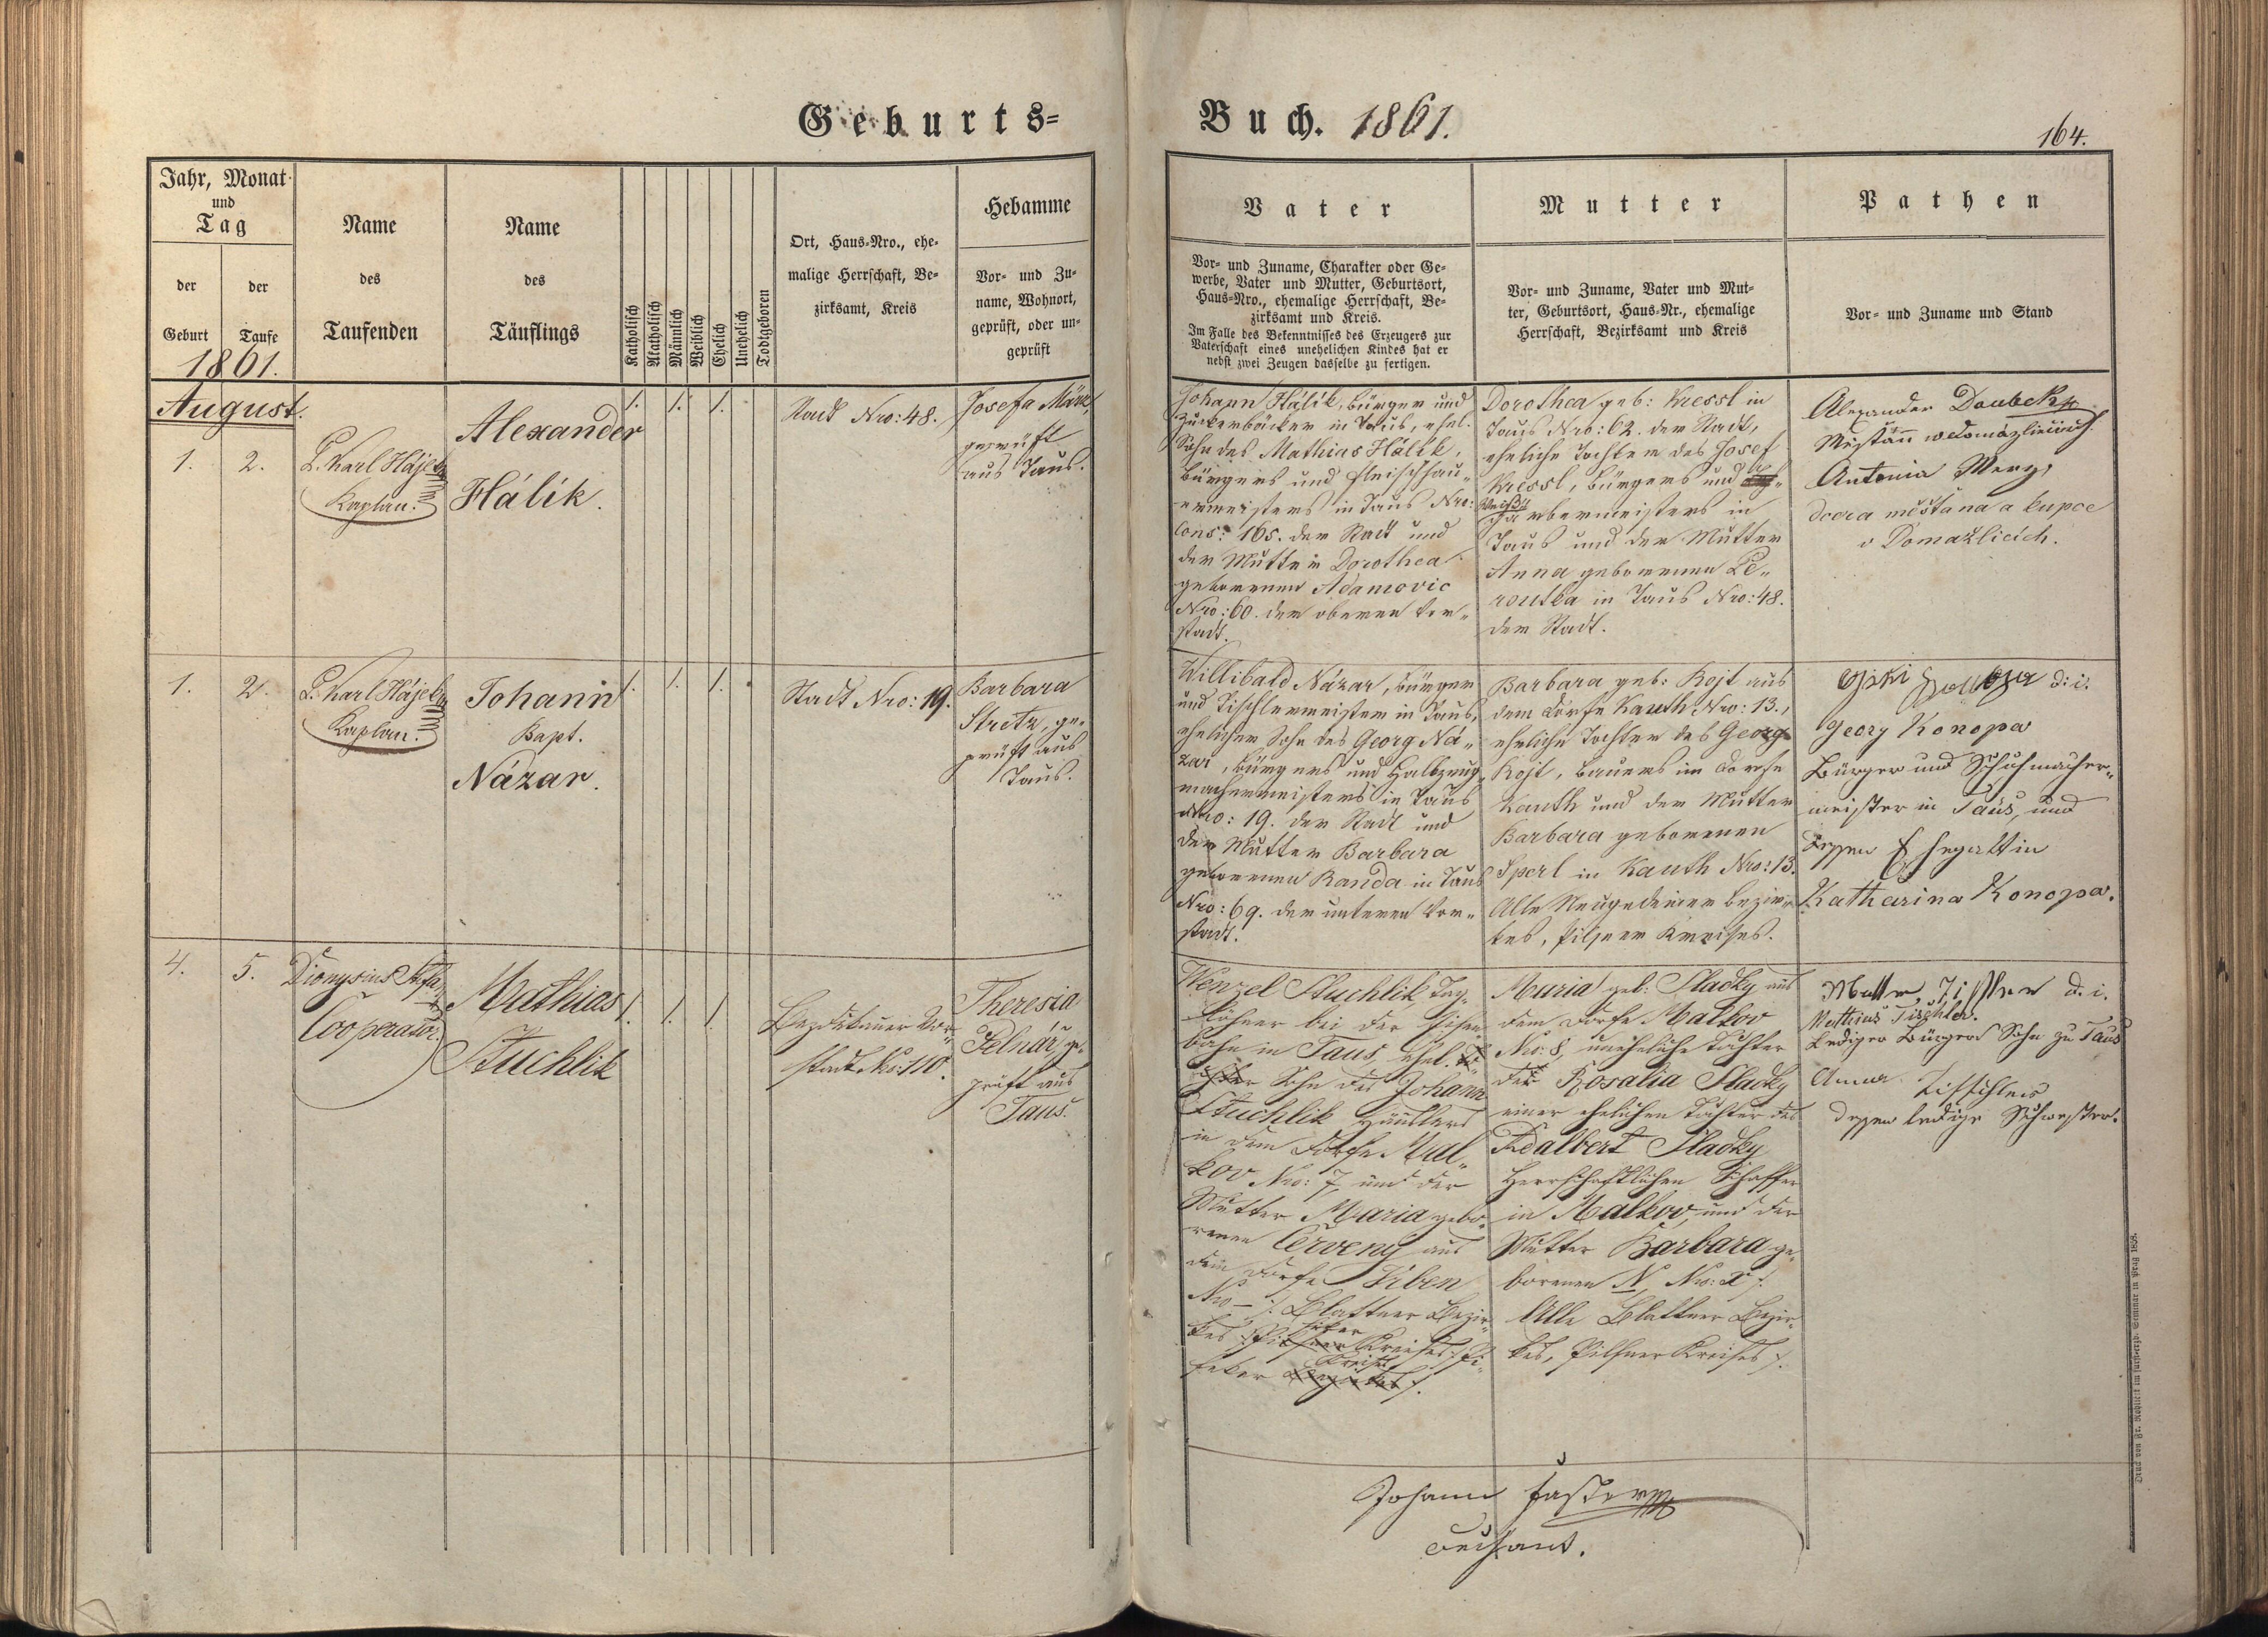 Geburts-
Buch. 1861.
164.
Jahr, Monat
und
Tag
der
Geburt
der
Taufe
1861.
Name
des
Taufenden
Name
des
Täuflings
Katholisch
Akatholisch
Männlich
Weiblich
Ehelich
Unehelich
Todtgeboren
Ort, Haus-Nro., ehe-
malige Herrschaft, Be-
zirksamt, Kreis
Hebamme
Vor- und Zu-
name, Wohnort,
geprüft, oder un-
geprüft
Vater
Vor- und Zuname, Charakter oder Ge-
werbe, Vater und Mutter, Geburtsort,
Haus-Nro., ehemalige Herrschaft, Be-
zirksamt und Kreis.
Im Falle des Bekenntnisses des Erzeugers zur
Vaterschaft eines unehelichen Kindes hat er
nebst zwei Zeugen dasselbe zu fertigen.
Mutter
Vor- und Zuname, Vater und Mut-
ter, Geburtsort, Haus-Nr., ehemalige
Herrschaft, Bezirksamt und Kreis
Pathen
Vor- und Zuname und Stand
August.
1. 2.
P. Karl Hájek
Kaplan.
Alexander
Hálík.
1. 1. 1.
Stadt Nro: 48.
Josefa März,
geprüft
aus Taus.
Johann Hálík, Bürger und
Zuckerbäcker in Taus, ehel.
Sohn des Mathias Hálík,
Bürgers und Fleischhau-
ermeisters in Taus Nro:
Cons: 165. der Stadt und
der Mutter Dorothea
geborenen Adamovic
Nro: 60. der oberen Vor-
stadt.
Dorothea geb: Kressl in
Taus Nro: 62. der Stadt,
eheliche Tochter des Josef
Kressl, Bürgers und
Weiß-
gärbermeisters in
Taus und der Mutter
Anna geborenen Pe-
routka in Taus Nro: 48.
der Stadt.
Alexander Daubek
Měštan w domažlicich
Antonia Merz,
dcera měšťana a kupce
v Domažlicích.
1. 2.
P. Karl Hájek
Kaplan.
Johann
Bapt.
Názar.
1. 1. 1.
Stadt Nro: 19.
Barbara
Stretz, ge-
prüft aus
Taus.
Willibald Názar, Bürger
und Tischlermeister in Taus,
ehelicher Sohn des Georg Ná-
zar, Bürgers und Halbzeug-
machermeisters in Taus
Nro: 19. der Stadt und
der Mutter Barbara
geborenen Randa in Taus
Nro: 69. der unteren Vor-
stadt.
Barbara geb: Kojt aus
dem Dorfe Kauth Nro: 13.,
eheliche Tochter des Georg
Kojt, Bauers im Dorfe
Kauth und der Mutter
Barbara geborenen
Sperl in Kauth Nro: 13.
Alle Neugedeiner Bezir-
kes, Pilsner Kreises.
d. i.
Georg Konopa
Bürger und Schuhmacher-
meister in Taus, und
dessen Ehegattin
Katharina Konopa.
4. 5.
Dionysius
Cooperator.
Mathias
Stuchlik
1. 1. 1.
Bezdekauer Vor-
stadt No: 110.
Theresia
Pelnář ge-
prüft aus
Taus.
Wenzel Stuchlik Tag-
löhner bei der Eisen-
bahn in Taus ehel.
Sohn des Johann
Stuchlik Häuslers
in dem Dorfe Mal-
kov Nro: 7, und der
Mutter Maria gebo-
renen Červený aus
dem Dorfe Úiben
Nro — /: Blattner Bezir-
kes Kreises :/ Pi-
seker Kreises
Maria geb: Sladky aus
dem Dorfe Malkov
Nro: 8, uneheliche Tochter
der Rosalia Sladky
einer ehelichen Tochter des
Adalbert Sladky
Herrschaftlichen Schaffer
in Malkov, und der
Mutter Barbara ge-
borenen N. Nro: x /:
Alle Blattner Bezir-
kes, Pilsner Kreises /.
d. i.
Mathias Tischler.
Lediger Bürgers Sohn zu Taus
Anna Tischler
dessen ledige Schwester.
Johann Faster
Dechant.
Druck von Fr. Rohliček im fürsterzb. Seminar in Prag 1858.